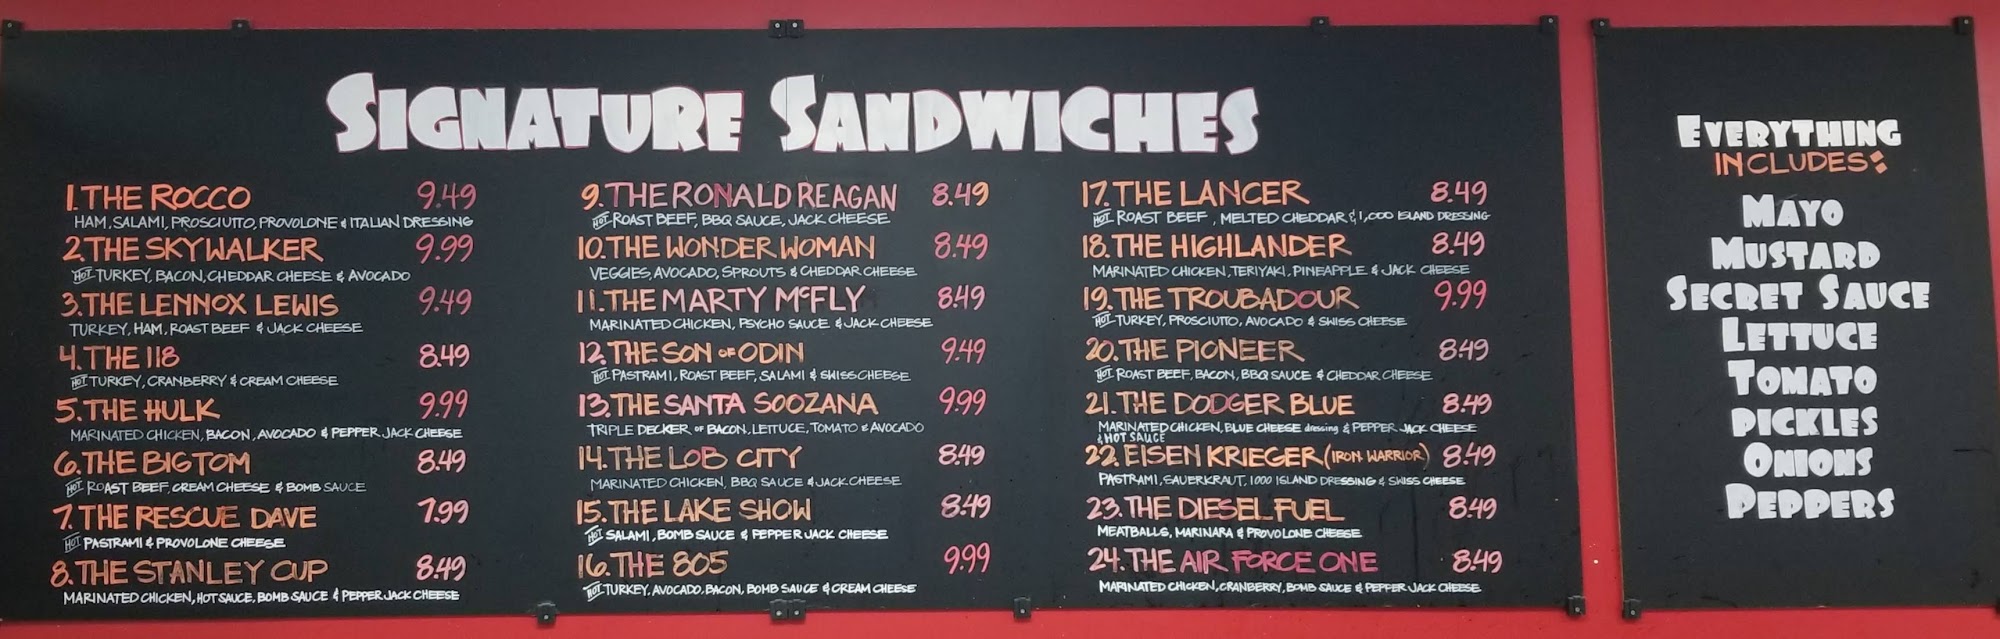 SIGNATURE SANDWICHES
1. THE ROCCO 9.49
HAM, SALAMI, PROSCIUTTO, PROVOLONE & ITALIAN DRESSING
2. THE SKYWALKER 9.99
HOT TURKEY, BACON, CHEDDAR CHEESE & AVOCADO
3. THE LENNOX LEWIS 9.49
TURKEY, HAM, ROAST BEEF & JACK CHEESE
4. THE 118 8.49
HOT TURKEY, CRANBERRY & CREAM CHEESE
5. THE HULK 9.99
MARINATED CHICKEN, BACON, AVOCADO & PEPPER JACK CHEESE
6. THE BIG TOM 8.49
HOT ROAST BEEF, CREAM CHEESE & BOMB SAUCE
7. THE RESCUE DAVE 7.99
HOT PASTRAMI & PROVOLONE CHEESE
8. THE STANLEY CUP 8.49
MARINATED CHICKEN, HOT SAUCE, BOMB SAUCE & PEPPER JACK CHEESE
9. THE RONALD REAGAN 8.49
HOT ROAST BEEF, BBQ SAUCE, JACK CHEESE
10. THE WONDER WOMAN 8.49
VEGGIES, AVOCADO, SPROUTS & CHEDDAR CHEESE
11. THE MARTY McFLY 8.49
MARINATED CHICKEN, PSYCHO SAUCE & JACK CHEESE
12. THE SON OF ODIN 9.49
HOT PASTRAMI, ROAST BEEF, SALAMI & SWISS CHEESE
13. THE SANTA SOOZANA 9.99
TRIPLE DECKER OF BACON, LETTUCE, TOMATO & AVOCADO
14. THE LOB CITY 8.49
MARINATED CHICKEN, BBQ SAUCE & JACK CHEESE
15. THE LAKE SHOW 8.49
HOT SALAMI, BOMB SAUCE & PEPPER JACK CHEESE
16. THE 805 9.99
HOT TURKEY, AVOCADO, BACON, BOMB SAUCE & CREAM CHEESE
17. THE LANCER 8.49
HOT ROAST BEEF, MELTED CHEDDAR & 1,000 ISLAND DRESSING
18. THE HIGHLANDER 8.49
MARINATED CHICKEN, TERIYAKI, PINEAPPLE & JACK CHEESE
19. THE TROUBADOUR 9.99
HOT TURKEY, PROSCIUTTO, AVOCADO & SWISS CHEESE
20. THE PIONEER 8.49
HOT ROAST BEEF, BACON, BBQ SAUCE & CHEDDAR CHEESE
21. THE DODGER BLUE 8.49
MARINATED CHICKEN, BLUE CHEESE dressing & PEPPER JACK CHEESE
& HOT SAUCE
22. EISEN KRIEGER (IRON WARRIOR) 8.49
PASTRAMI, SAUERKRAUT, 1000 ISLAND DRESSING & SWISS CHEESE
23. THE DIESEL FUEL 8.49
MEATBALLS, MARINARA & PROVOLONE CHEESE
24. THE AIR FORCE ONE 8.49
MARINATED CHICKEN, CRANBERRY, BOMB SAUCE & PEPPER JACK CHEESE
EVERYTHING
INCLUDES:
MAYO
MUSTARD
SECRET SAUCE
LETTUCE
TOMATO
PICKLES
ONIONS
PEPPERS